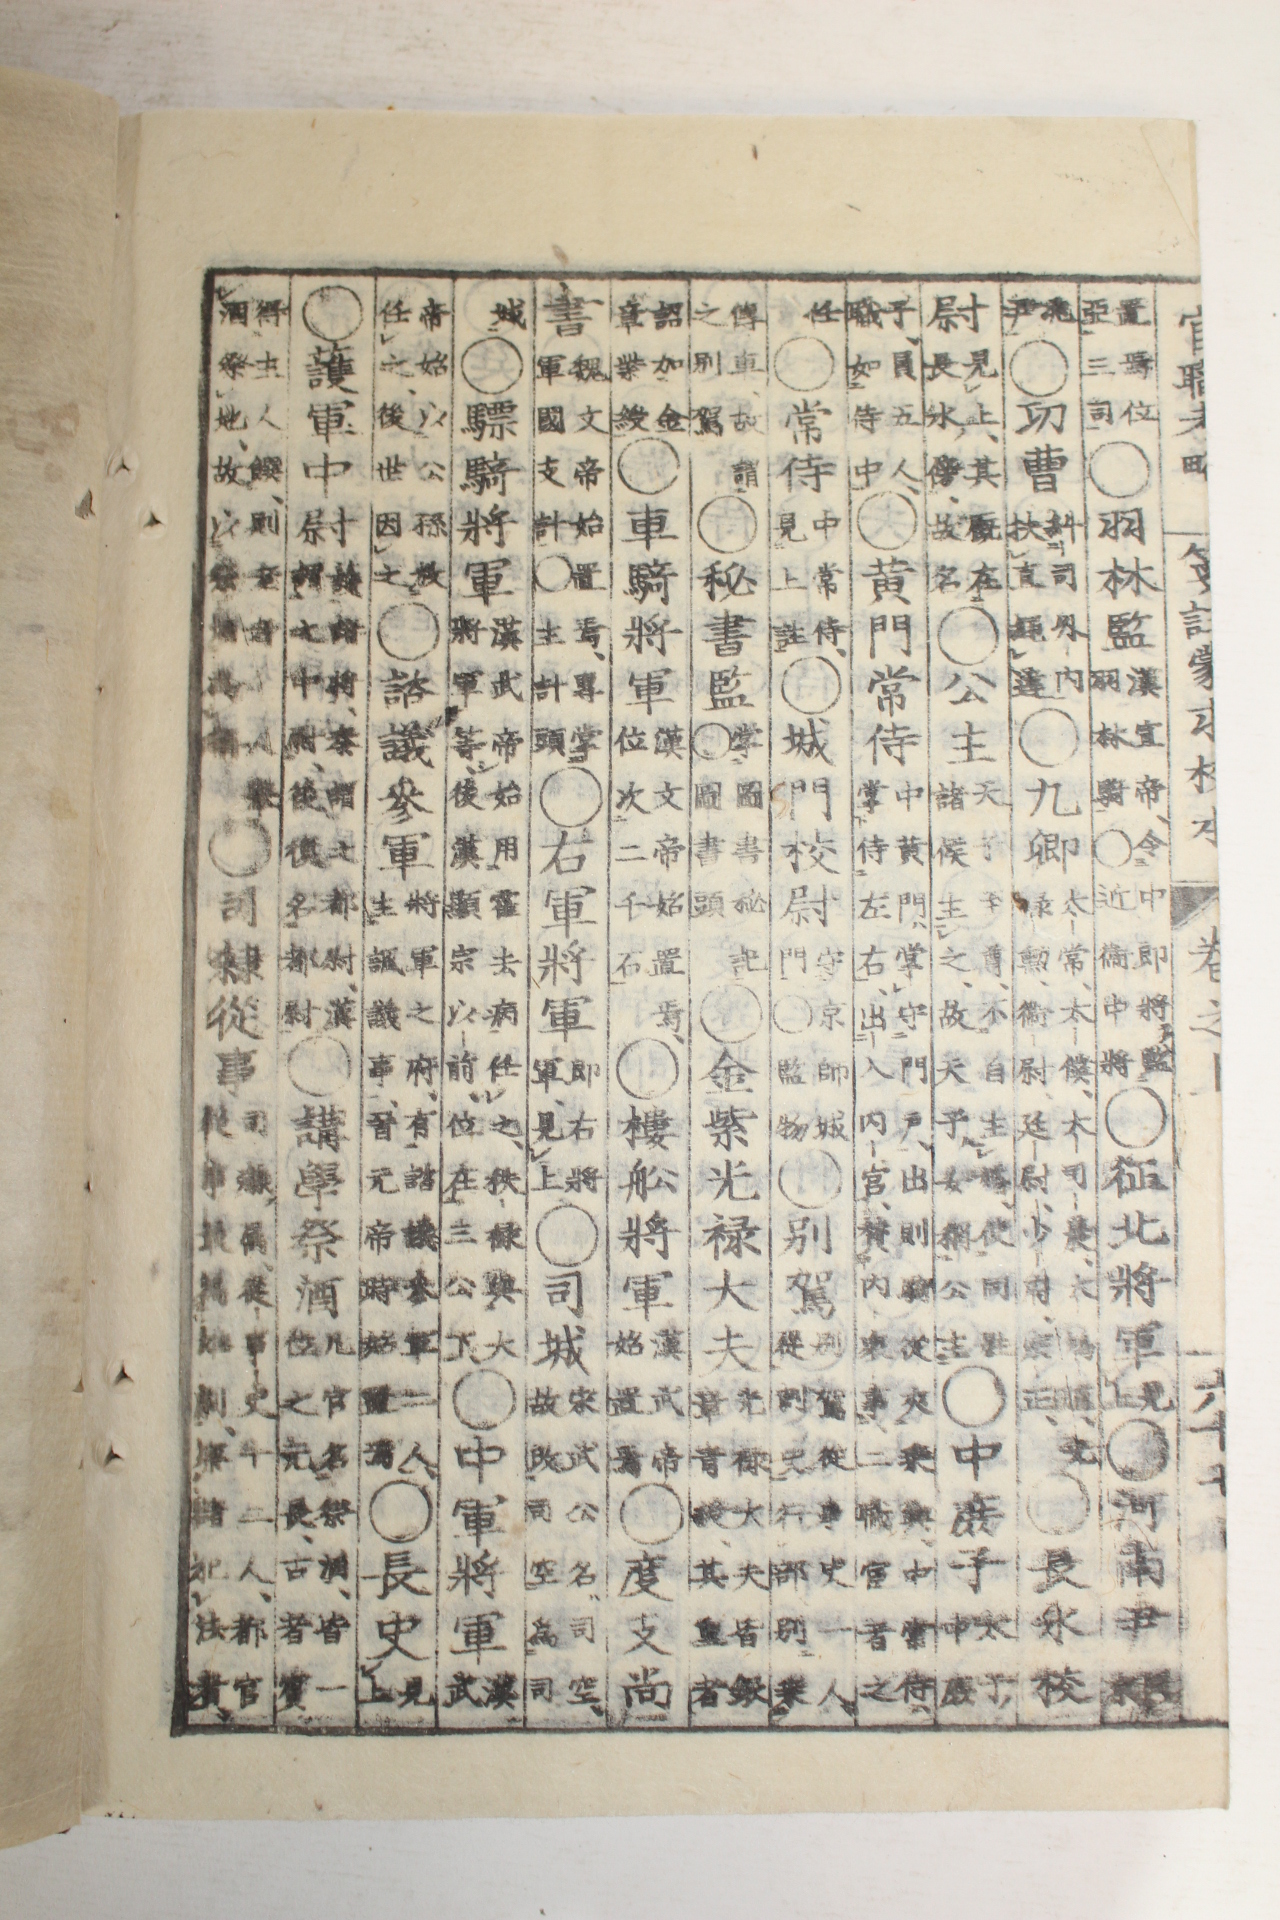 官職考略 箋註蒙求校本 卷之 六十七
置焉位亞三司○羽林監漢宣帝令中郎將監羽林騎○近衛中將○征北將軍見上○河南尹
尹○功曹糾司外內扶直○九卿太常太僕太司農太光祿勳衛尉廷尉少府宗正○長水校
尉寸見上其廨在長水傍故名○公主天子至尊不自主婚使同姓諸侯主之故天子女稱公主○中庶子太子中庶
子員五人職如侍中○黃門常侍中黃門掌守門戶出則從夾乘輿中常侍掌侍左右出入內宮贊內衆事二職宦者之
任○常侍中常侍見上註○城門校尉守京師城門○監物○別駕別駕從事史一人從刺史行部別乘
傳車故謂之別駕○秘書監掌圖書秘記○圖書頭○金紫光祿大夫光祿大夫皆銀章青綬其重者
詔加金章紫綬○車騎將軍漢文帝始置焉位次二千石○樓船將軍漢武帝始置焉○度支尚
書魏文帝始置焉專掌軍國支計○主計頭○右軍將軍即右將軍見上○司城宋武公名司空故改司空為司
城○驃騎將軍漢武帝始用霍去病任之秩祿與大將軍等後漢顯宗以前位在三公下○中軍將軍漢武
帝始以公孫敖任之後世因之○諮議參軍將軍之府有諮議參軍二人主諷議事晉元帝時始置焉○長史見上
○護軍中尉寸護諸將秦謂之都尉漢謂之中尉後復名都尉○講學祭酒凡官名祭酒皆一位之元長古者賓
得主人饌則老者一人舉酒祭地故以祭酒為稱○司隸從事司隸屬從事史十二人都官從事最為劇察諸犯法者